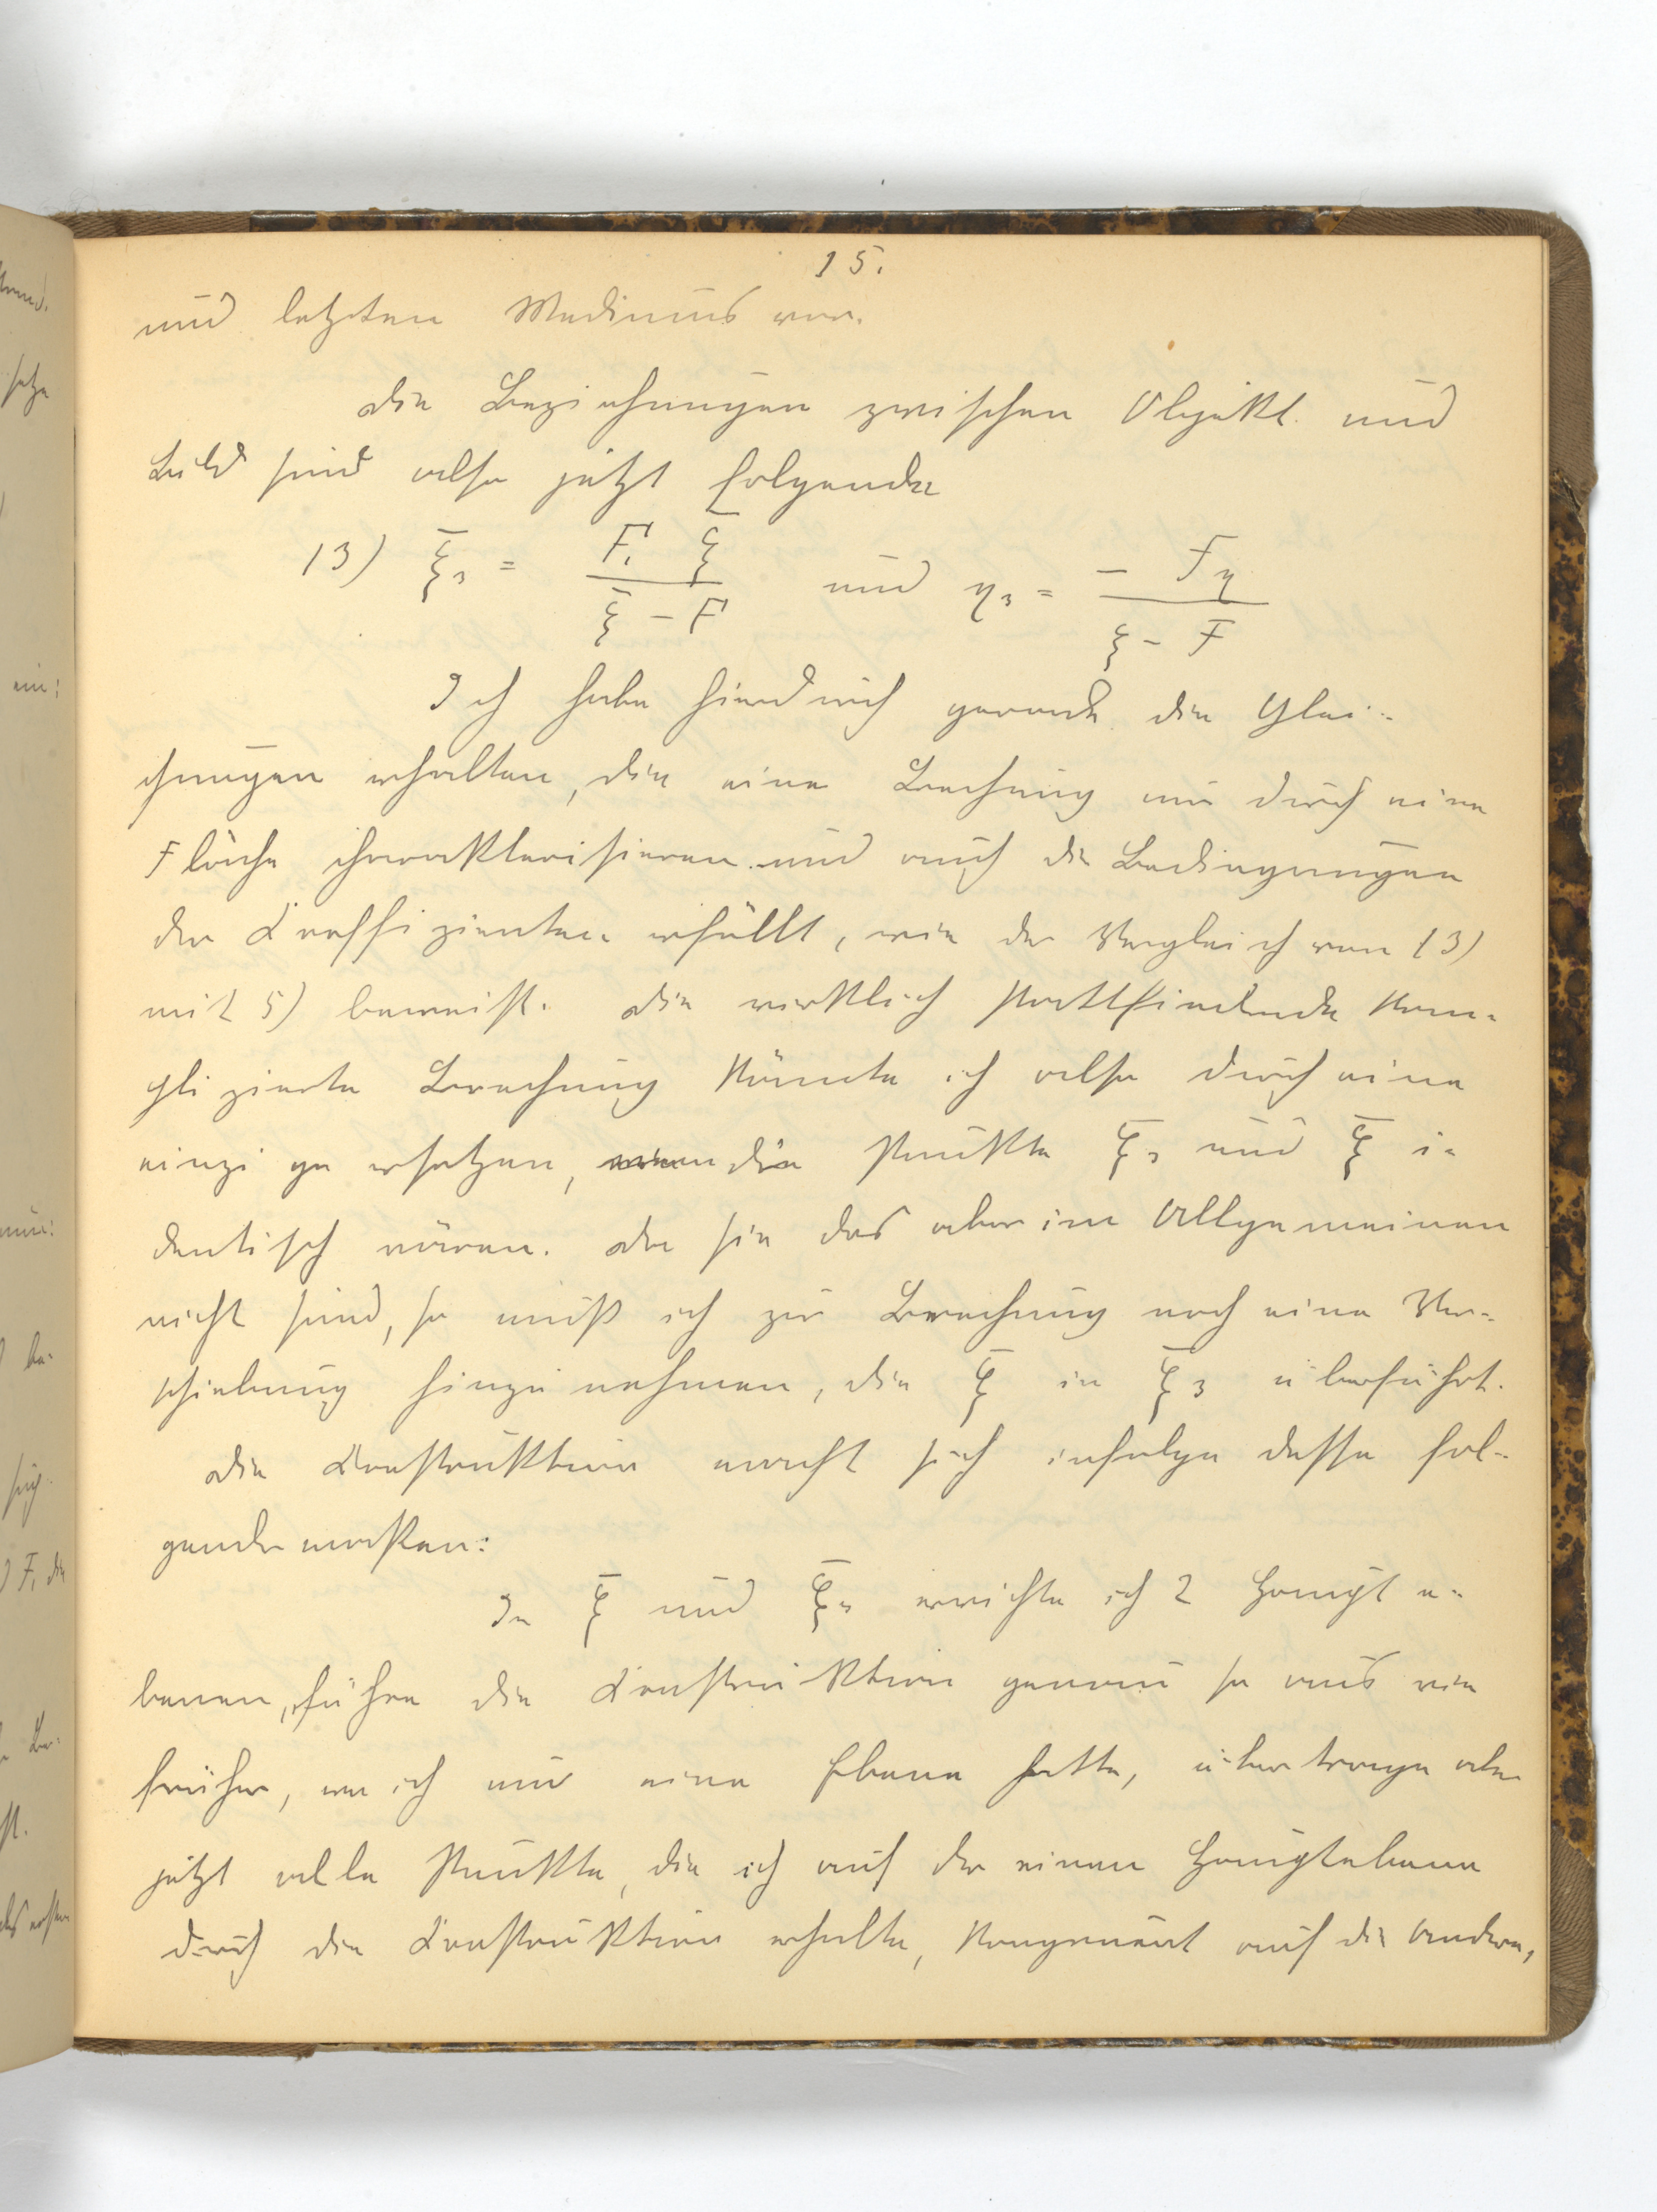 15.
und letzten Mediums vor.
Die Beziehungen zwischen Objekt und
Bild sind also jetzt folgende
13) ξ̄₃ = F₁ ξ̄ / ξ̄ − F und η₃ = − F η / ξ − F
Ich habe hierdurch gerade die Glei-
chungen erhalten, die eine Brechung nur durch eine
Fläche charakterisieren und auch die Bedingungen
der Koeffizienten erfüllt, wie der Vergleich von 13)
mit 5) beweist. Die wirklich stattfindende kom-
plizierte Brechung könnte ich also durch eine
einzige ersetzen, wenn die Punkte ξ̄₃ und ξ̄ i-
dentisch wären. Da sie das aber im Allgemeinen
nicht sind, so muß ich zur Brechung noch eine Ver-
schiebung hinzu nehmen, die ξ̄ in ξ̄₃ überführt.
Die Konstruktion macht sich infolge dessen fol-
gendermaßen:
In ξ̄ und ξ̄₃ errichte ich 2 Haupte-
benen, führe die Konstruktion genau so aus wie
früher, wo ich nur eine Ebene hatte, übertrage aber
jetzt alle Punkte, die ich auf der einen Hauptebene
durch die Konstruktion erhalte, kongruent auf die Andere,